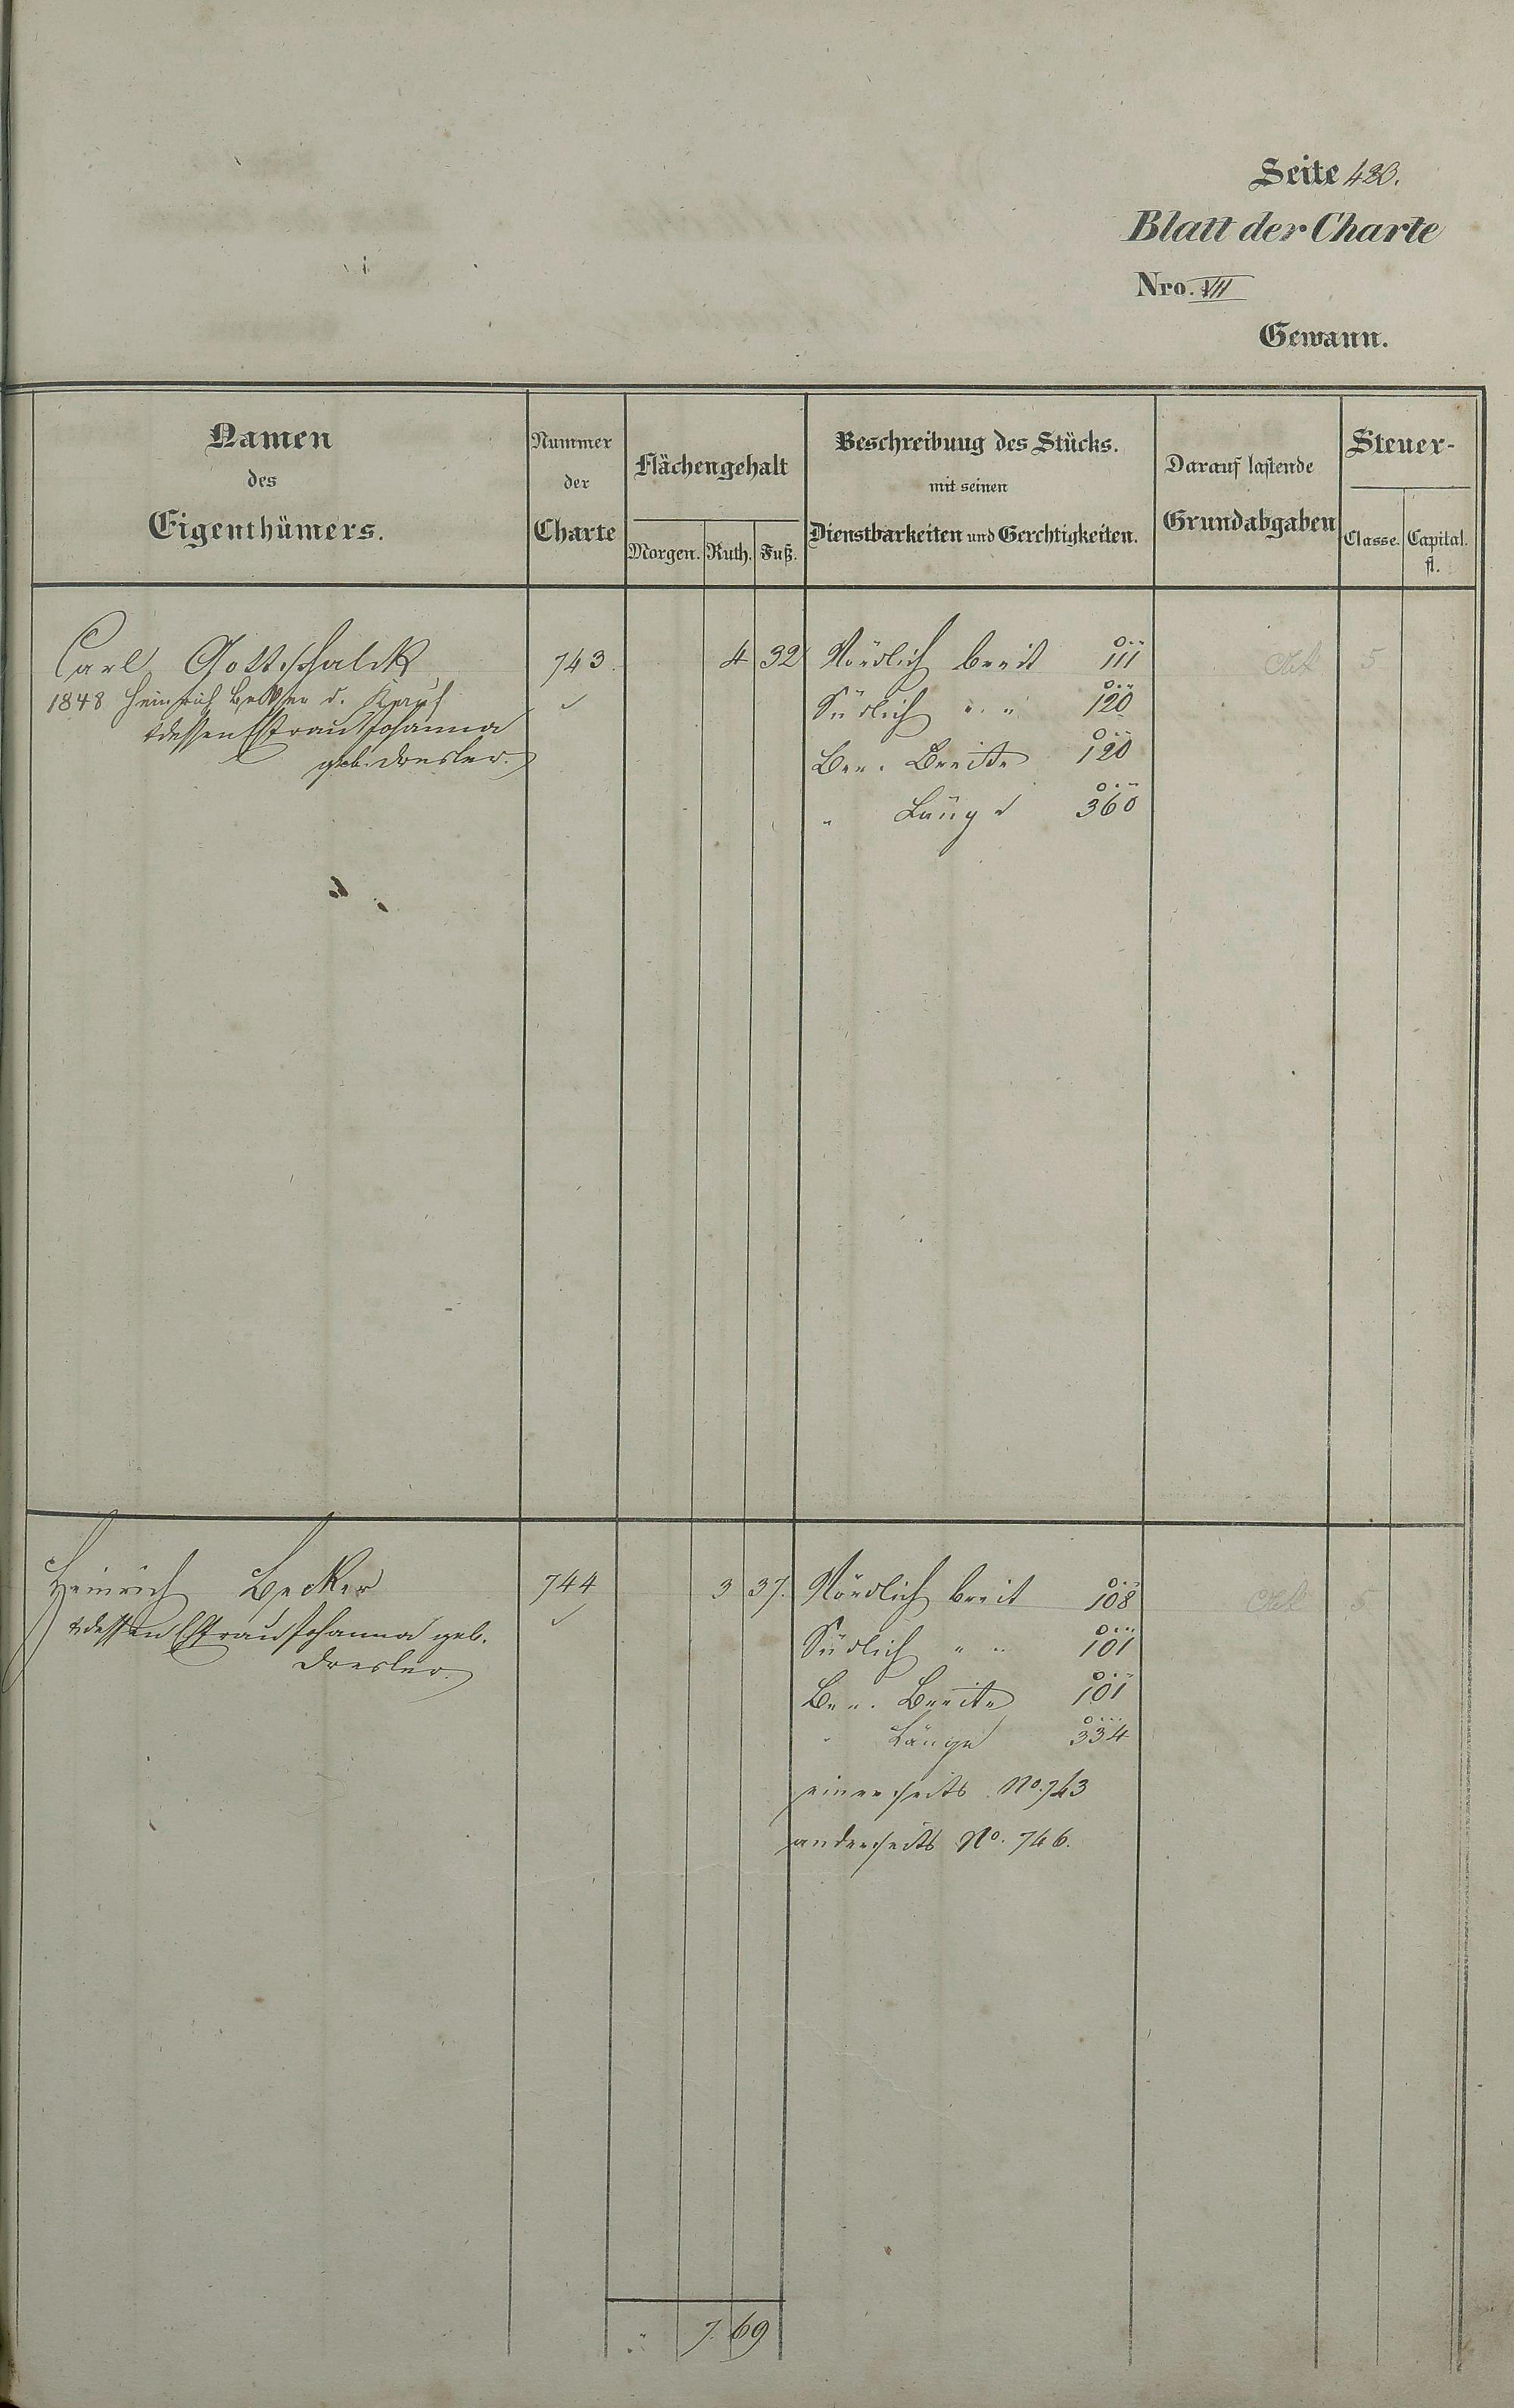 Seite 420.
Blatt der Charte
Nro. VII
Gewann.
Namen
des
Eigenthümers.
Nummer
der
Charte
Flächengehalt
Morgen. Ruth. Fuß.
Beschreibung des Stücks.
mit seinen
Dienstbarkeiten und Gerechtigkeiten.
Darauf lastende
Grundabgaben
Steuer-
Classe. Capital.
fl.
Carl Gottschalck 743. 4 32 Nördlich breit 111 5
1848 Heinrich Becker d. Kauf Südlich " " 120
& dessen Ehefrau Johanna
geb. Dresler. Ber. Breite 120
" Länge 360
Heinrich Becker 744 3 37. Nördlich breit 108 5
& dessen Ehefrau Johanna geb. Südlich " " 101
Dresler. Ber. Breite 101
" Länge 334
einerseits No. 743
anderseits No. 746.
" 7. 69